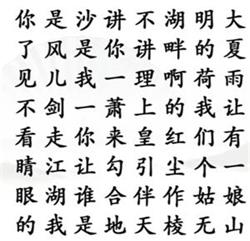 你是沙讲不湖明大
了风是你讲畔的夏
见儿我一理啊荷雨
不剑一萧上的我让
看走你来皇红们有
睛江让勾引尘个一
眼湖谁合伴作姑娘
的我是地天棱无山